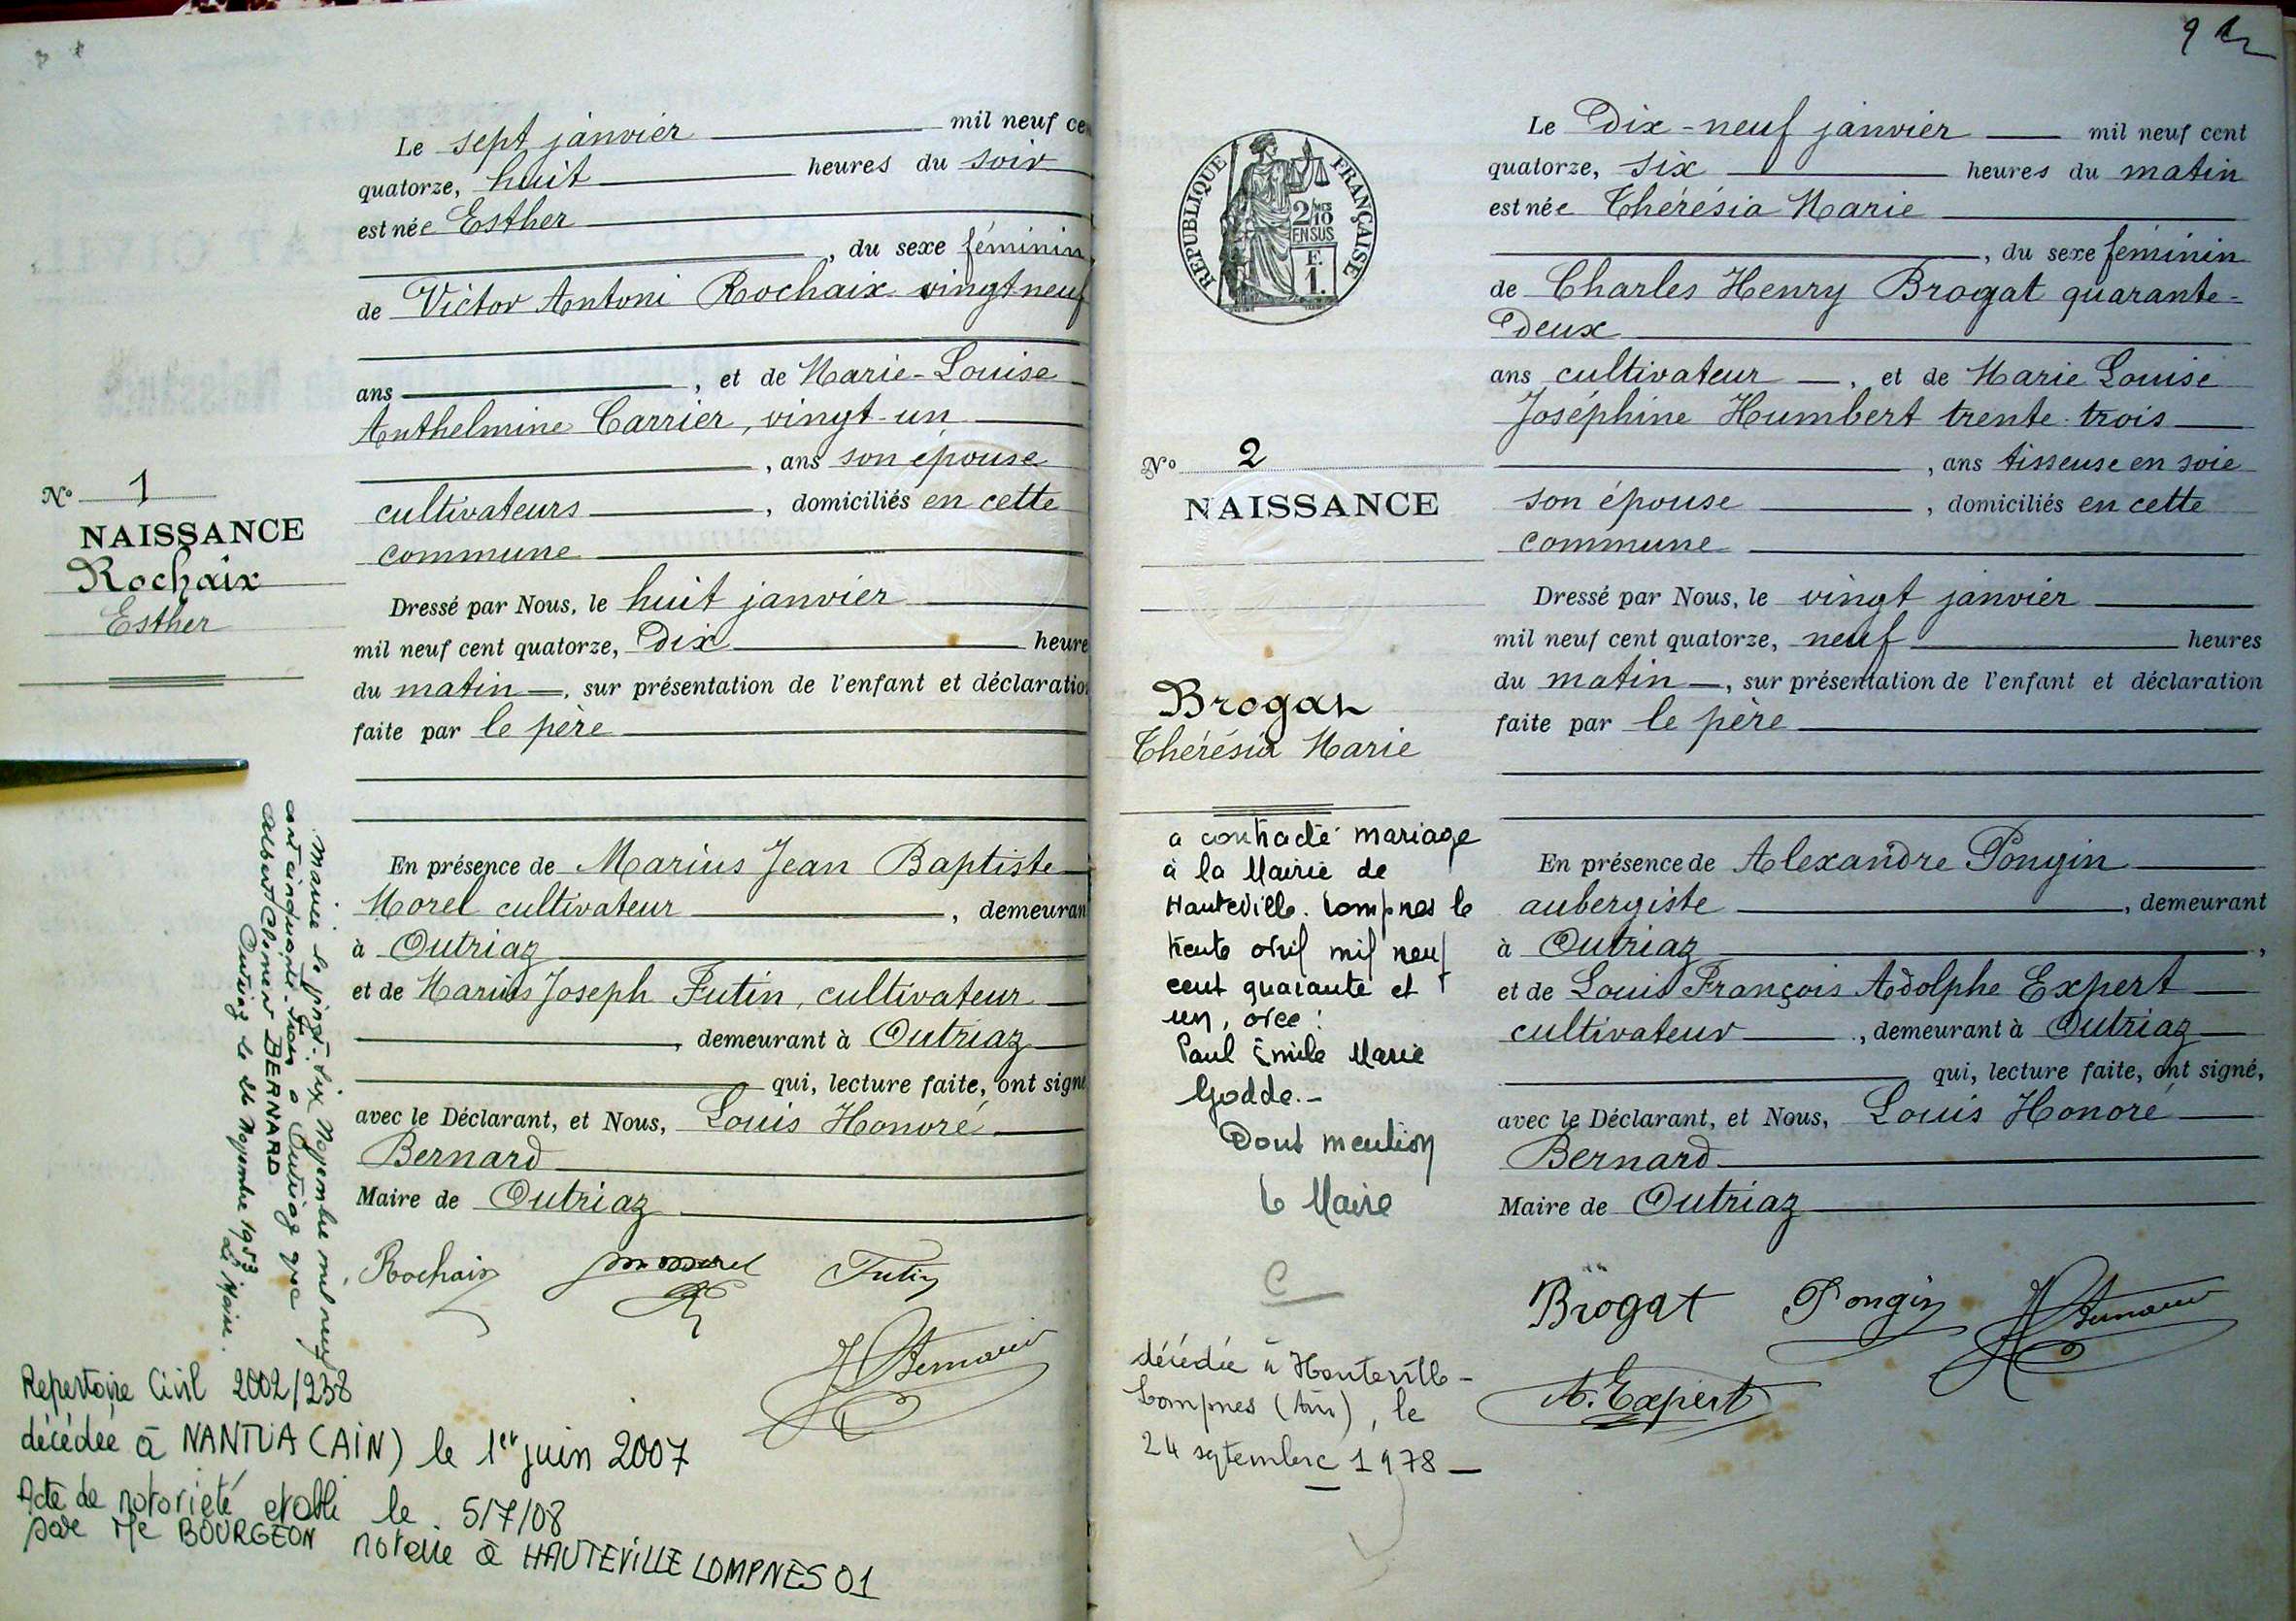 Le sept janvier mil neuf ce
quatorze, huit heures du soir
est née Esther
, du sexe féminin
de Victor Antoni Rochaix vingt neuf
ans , et de Marie-Louise
Anthelmine Carrier, vingt-un
, ans son épouse
cultivateurs , domiciliés en cette
commune
No 1
NAISSANCE
Rochaix
Esther
Dressé par Nous, le huit janvier
mil neuf cent quatorze, Dix heure
du matin , sur présentation de l'enfant et déclaratio
faite par le père
En présence de Marius Jean Baptiste
Morel cultivateur , demeuran
à Outriaz
et de Marius Joseph Futin, cultivateur
, demeurant à Outriaz
qui, lecture faite, ont signé
avec le Déclarant, et Nous, Louis Honoré
Bernard
Maire de Outriaz
Mariée le vingt-six Novembre mil neuf
cent cinquante-trois à Outriaz avec
Albert Clément BERNARD
Outriaz le 26 Novembre 1953
Le Maire.
Rochaix
Futin
Repertoire Civil 2002/238
décédée à NANTUA (AIN) le 1er juin 2007
Acte de notoriété etabli le 5/7/08
par Me BOURGEON notaire à HAUTEVILLE LOMPNES 01
9
REPUBLIQUE FRANÇAISE
2/10 MES
EN SUS
F.
1.
Le Dix-neuf janvier mil neuf cent
quatorze, six heures du matin
est née Thérésia Marie
, du sexe féminin
de Charles Henry Brogat quarante-
Deux
ans cultivateur , et de Marie Louise
Joséphine Humbert trente-trois
, ans tisseuse en soie
son épouse , domiciliés en cette
commune
No 2
NAISSANCE
Brogat
Thérésia Marie
Dressé par Nous, le vingt janvier
mil neuf cent quatorze, neuf heures
du matin , sur présentation de l'enfant et déclaration
faite par le père
En présence de Alexandre Pongin
aubergiste , demeurant
à Outriaz ,
et de Louis François Adolphe Expert
cultivateur , demeurant à Outriaz
qui, lecture faite, ont signé,
avec le Déclarant, et Nous, Louis Honoré
Bernard
Maire de Outriaz
a contracté mariage
à la Mairie de
Hauteville-Lompnes le
trente avril mil neuf
cent quarante et
un, avec :
Paul Émile Marie
Godde.-
Dont mention
Le Maire
Brogat Pongin
A. Expert
décédée à Hauteville-
Lompnes (Ain), le
24 septembre 1978